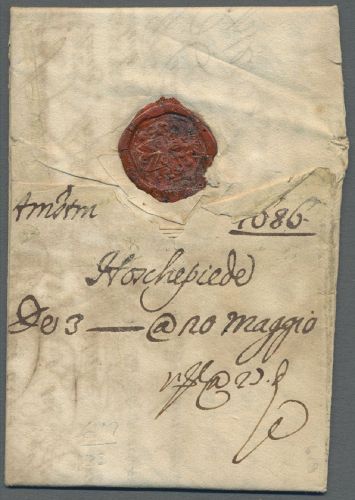 Amstm 1686
Hoschepiede
De 3 — @ 20 Maggio